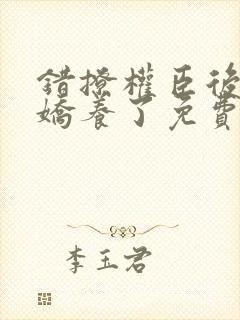 錯撩權臣後
嬌養了免費
李玉君